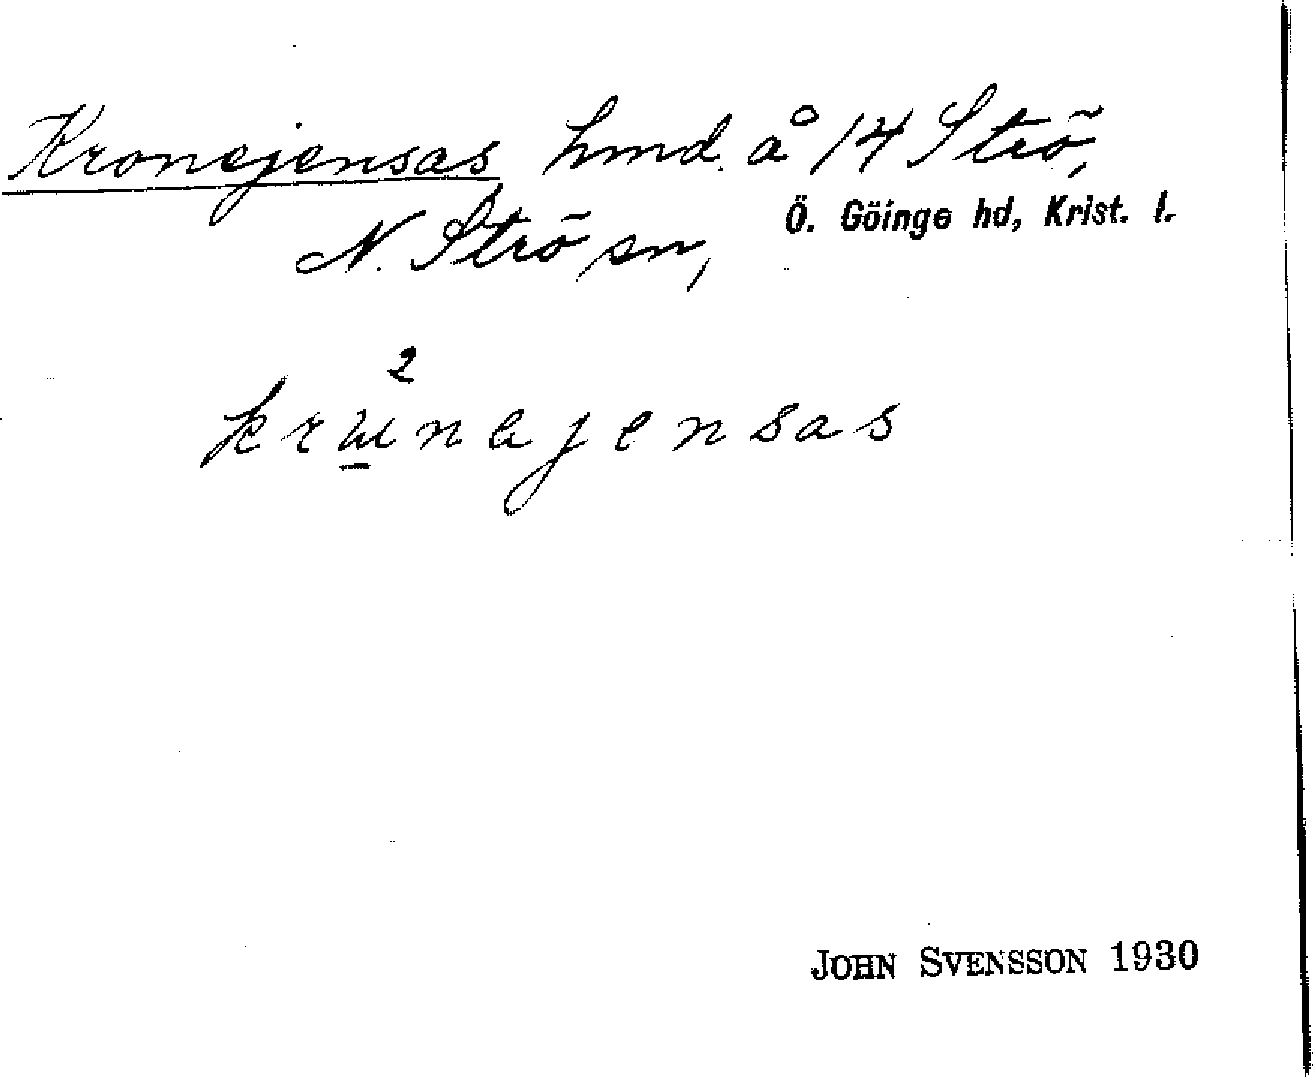 Kronejensas hmd. å 14 Strö,
N. Strö sn, Ö. Göinge hd, Krist. l.
2
JOHN SVENSSON 1930